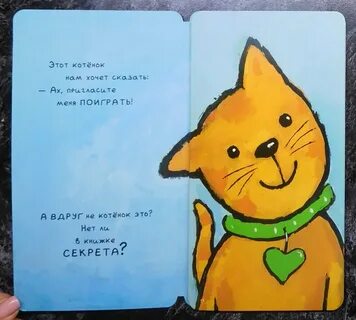 Этот котёнок
нам хочет сказать:
— Ах, пригласите
меня ПОИГРАТЬ!
А ВДРУГ не котёнок это?
Нет ли
в книжке
СЕКРЕТА?